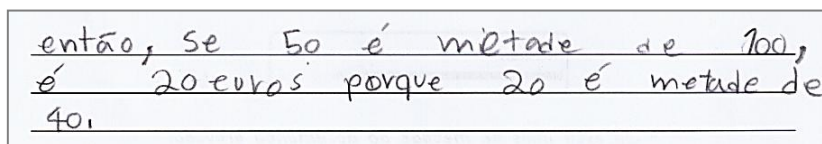 então, se 50 é metade de 100,
é 20 euros porque 20 é metade de
40.